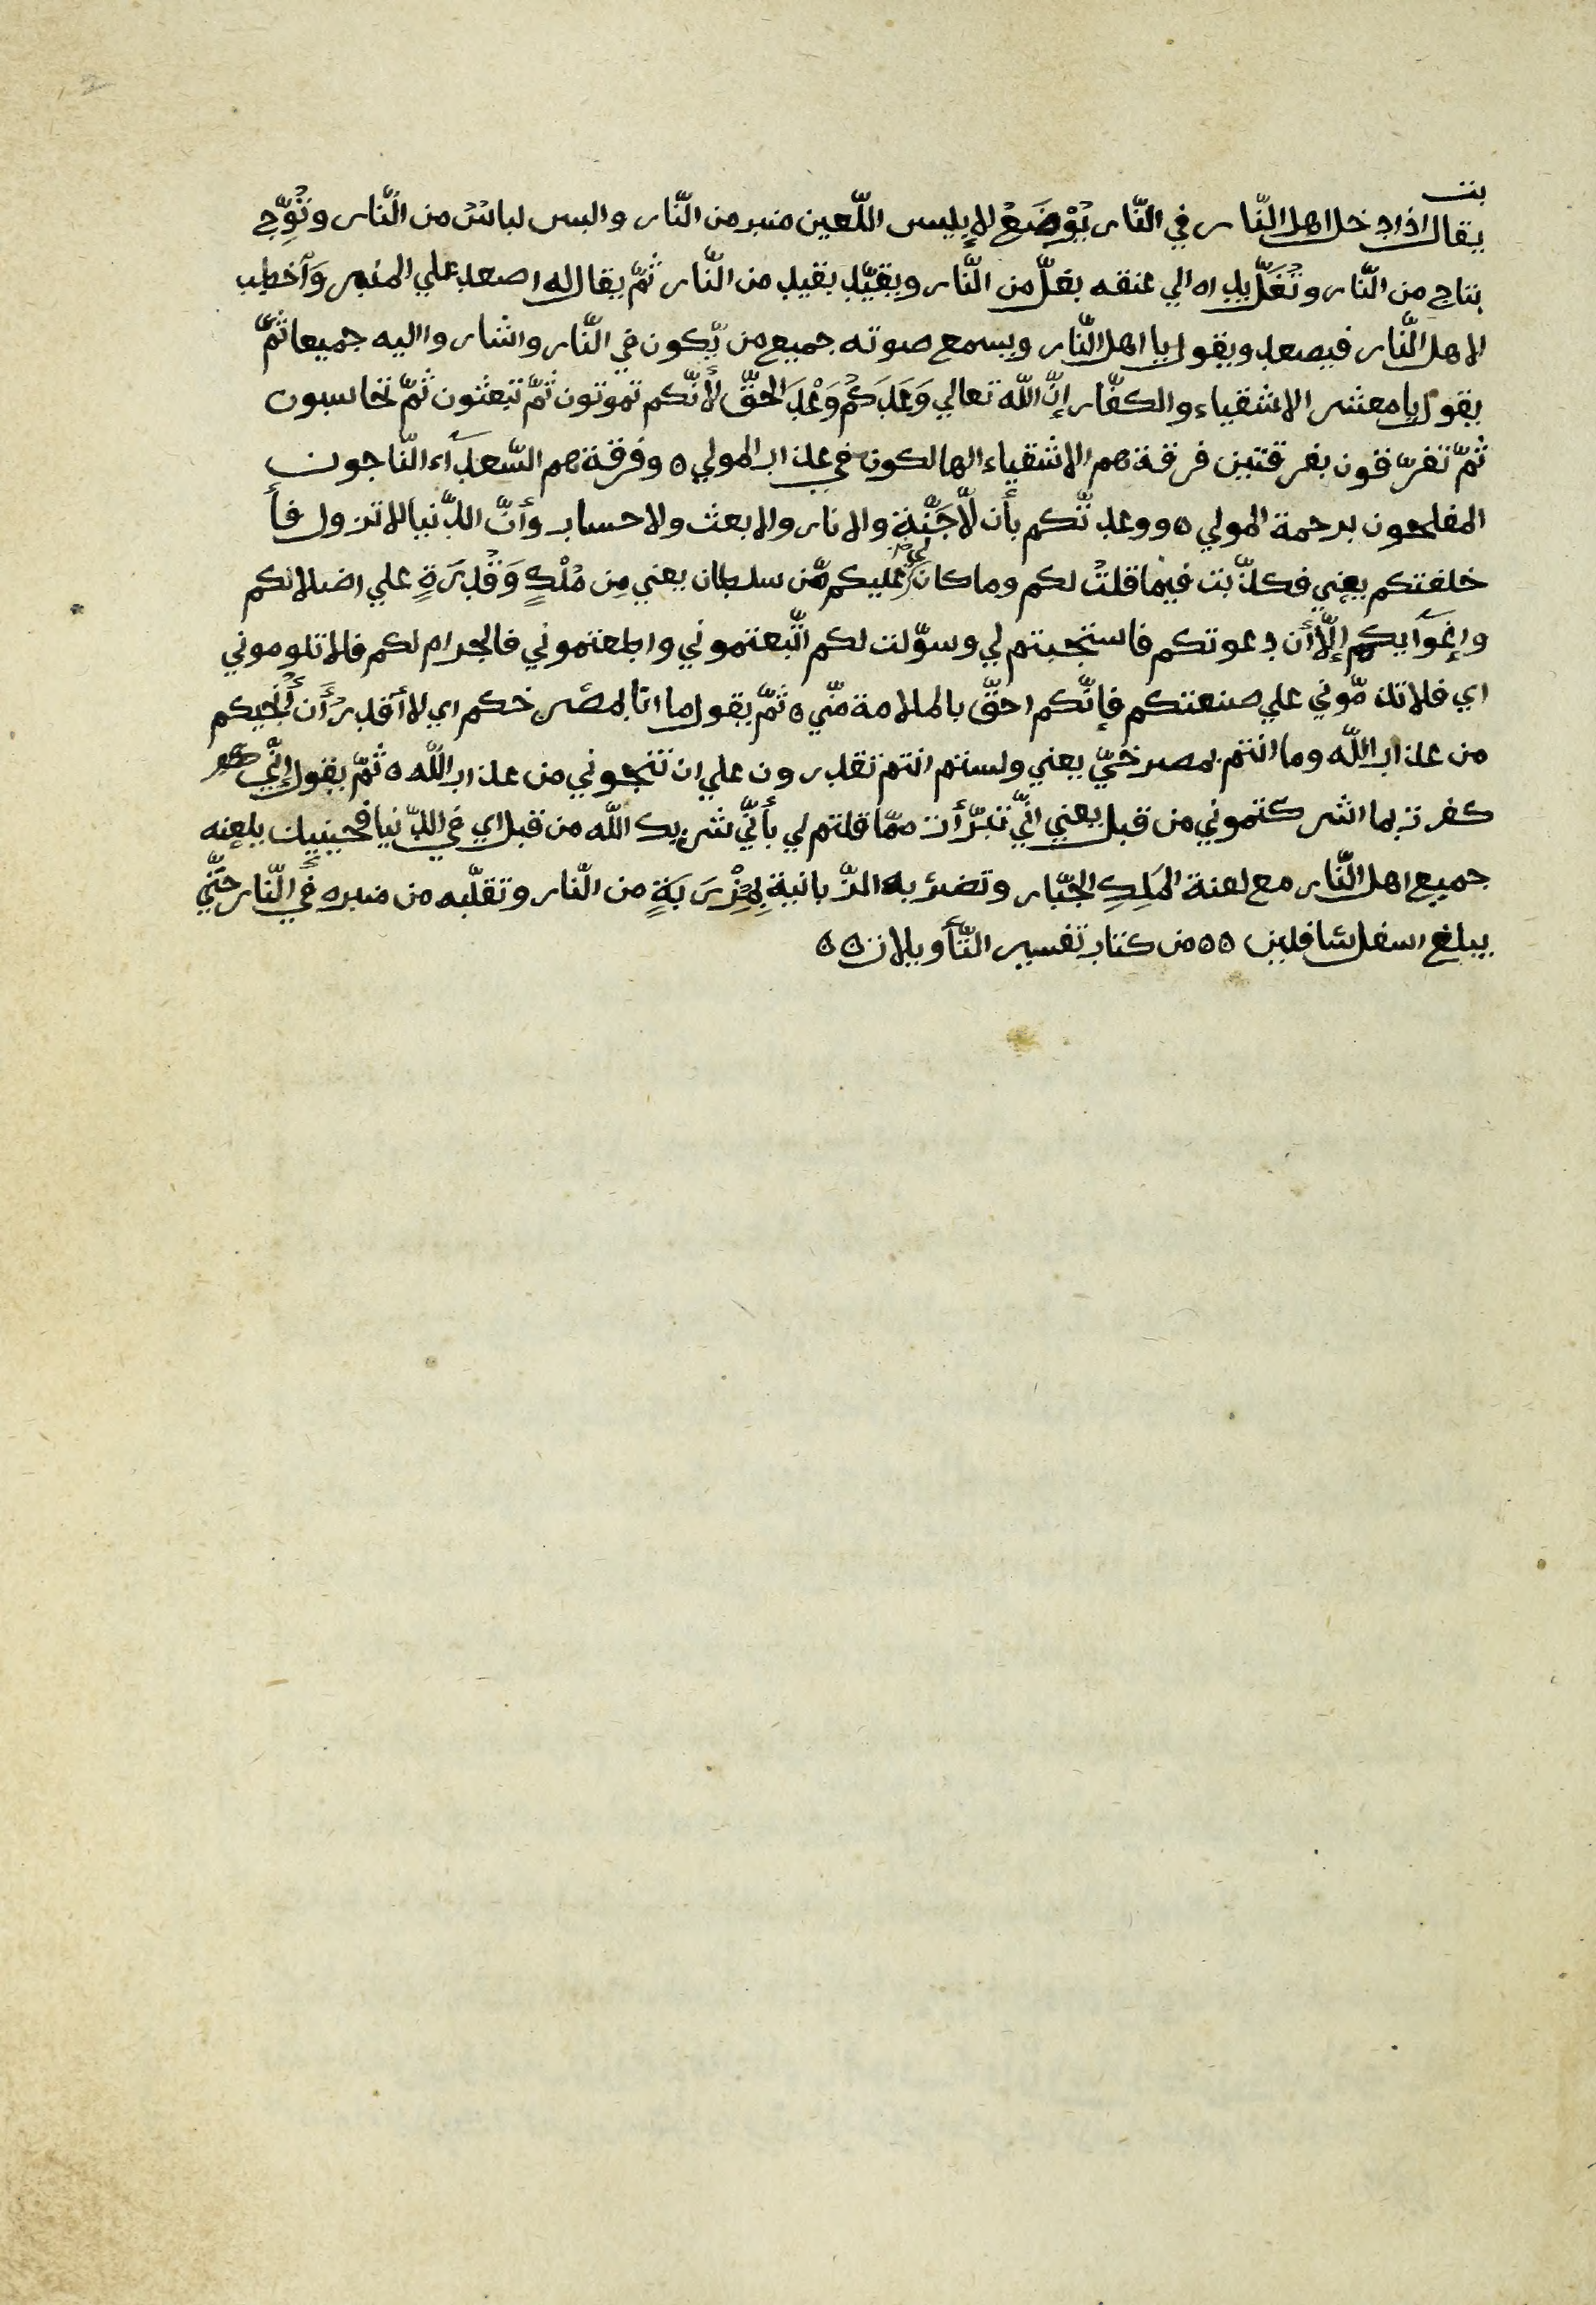 بنت
يقال اذا دخل اهل النّار في النّار يُوْضَعْ لإبليس اللّعين منبر من النّار والبس لباسٌ من النّار وتُوِّج
بتاج من النّار وتُغَلّ يداه الي عنقه بغلّ من النّار ويقيّد بقيد من النّار ثمّ يقال له اصعد علي المنبر وَٱخطب
لاهل النّار فيصعد ويقول يا اهل النّار ويسمع صوته جميع من يّكون في النّار واشاروا اليه جميعا ثمّ
يقول يا معشر الاشقياء والكفّار إنّ اللّه تعالي وَعَدَكُمْ وَعْدَ الحقّ لأنّكم تموتون ثمّ تبعثون ثمّ تحاسبون
ثمّ تفرّقون بفرقتين فرقة هم الاشقياء الهالكون في عذاب المولي ٥ وفرقة هم السّعدَآء النّاجون
المفلحون برحمة المولي ٥ ووعدتّكم بأن لّا جَنّة ولا نار ولا بعث ولا حساب وأنّ الدّنيا لا تزول فأ
خلفتكم يعني فكذّبت فيما قلتُ لكم وما كان لي عليكم مّن سلطان يعني مِن مُلْكٍ وَقُدْرَةٍ علي اضلالكم
وإغوَآيكم إلّا أن دعوتكم فاستجبتم لي وسوّلت لكم اتّبعتموني واطعتموني فالجرام لكم فلا تلوموني
اي فلا تذمّوني علي صنعتكم فإنّكم احقّ بالملامة منّي ٥ ثمّ يقول ما انا بمصرخكم اي لا أقدر أن أُنجيكم
من عذاب اللّه وما انتم بمصرخيّ يعني ولستم انتم تقدرون علي ان تنجوني من عذاب اللّه ٥ ثمّ يقول إنّي
كفرت بما اشركتموني من قبل يعني انّي تبرّأت ممّا قلتم لي بأنّي شريك اللّه من قبل اي في الدّنيا فحينيذ يلعنه
جميع اهل النّار مع لعنة المَلِكِ الجبّار وتضربه الزّبانية بِمِزْرَبَةٍ من النّار وتقلّبه من منبره في النّار حتّي
يبلغ اسفل سافلين ٥٥ من كتاب تفسير التّأويلات ٥٥